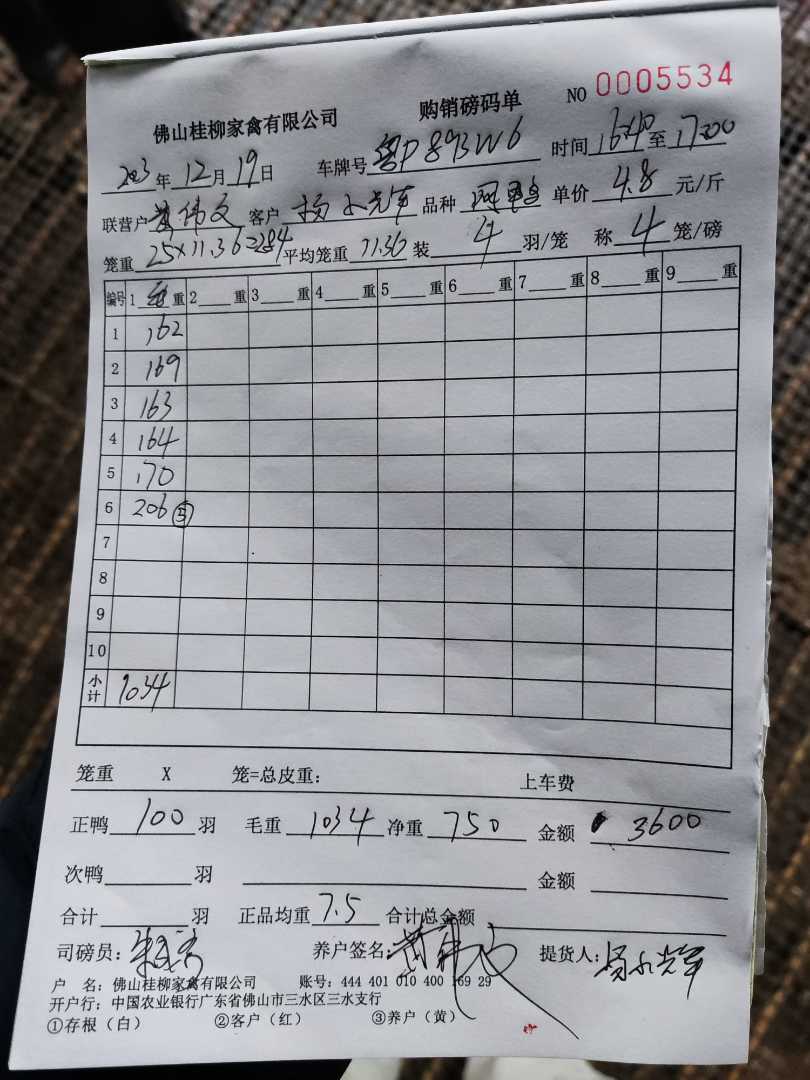 佛山桂柳家禽有限公司 购销磅码单 NO 0005534
2023年12月19日 车牌号粤P893W6 时间16:40至17:00
联营户黄伟文 客户杨小光军 品种 单价4.8元/斤
笼重25×11.36=284平均笼重11.36装4羽/笼 称4笼/磅
编号 1 重 2 重 3 重 4 重 5 重 6 重 7 重 8 重 9 重
1 162
2 169
3 163
4 164
5 170
6 206 ⑤
7
8
9
10
小计 1034
笼重 X 笼=总皮重: 上车费
正鸭100羽 毛重1034净重750 金额3600
次鸭 羽 金额
合计 羽 正品均重7.5合计总金额
司磅员: 养户签名: 提货人:
户 名: 佛山桂柳家禽有限公司 账号: 444 401 010 400 169 29
开户行: 中国农业银行广东省佛山市三水区三水支行
①存根（白） ②客户（红） ③养户（黄）